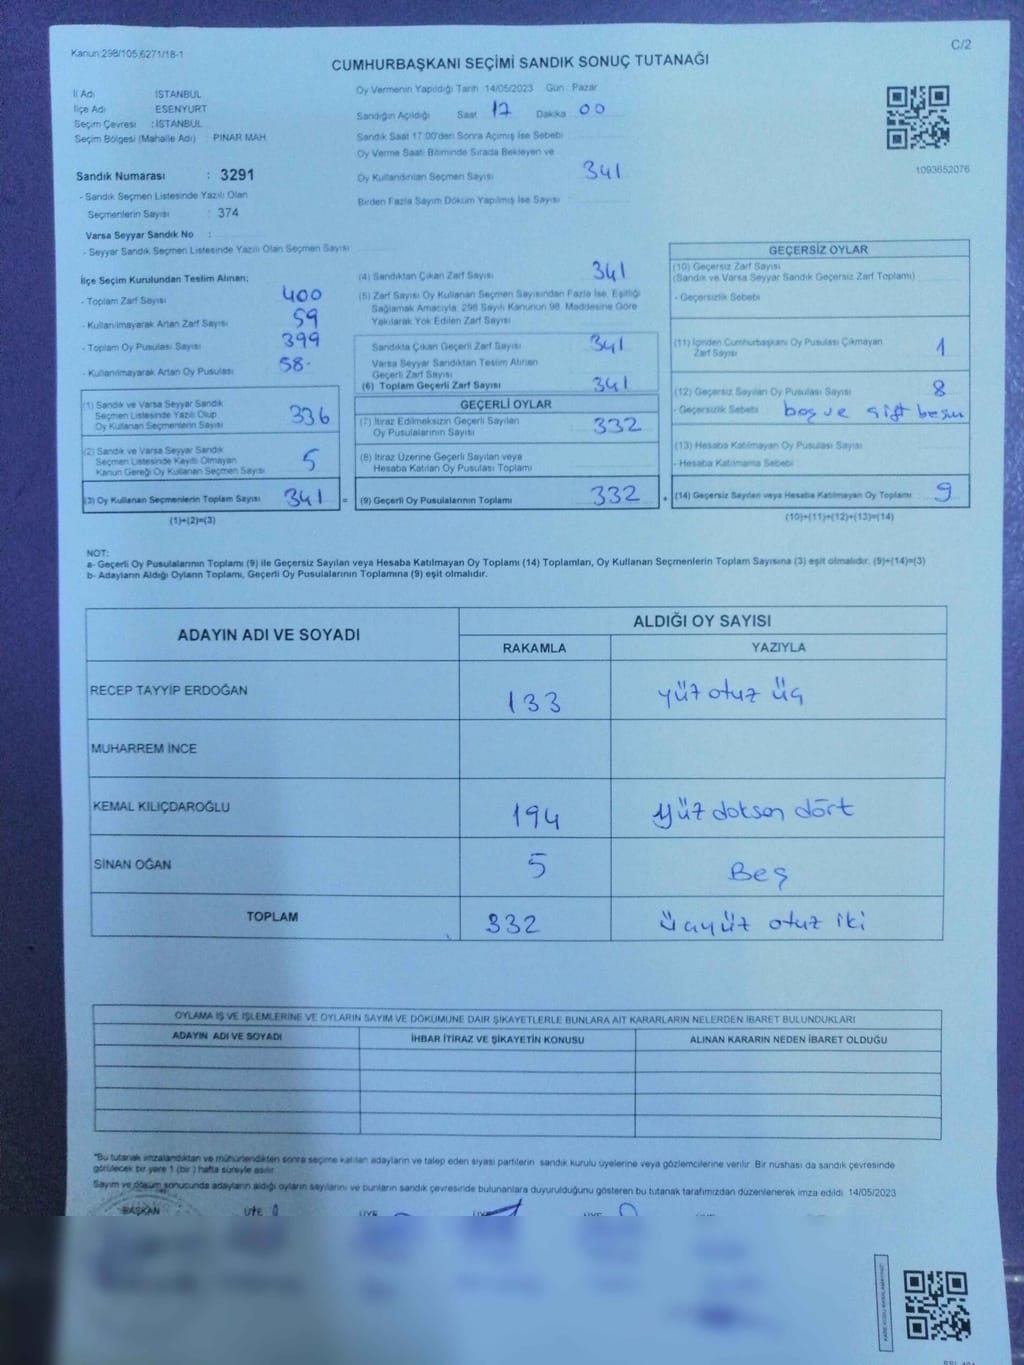 Kanun:298/105,6271/18-1
C/2
CUMHURBAŞKANI SEÇİMİ SANDIK SONUÇ TUTANAĞI
İl Adı : İSTANBUL
İlçe Adı : ESENYURT
Seçim Çevresi : İSTANBUL
Seçim Bölgesi (Mahalle Adı) : PINAR MAH.
Sandık Numarası : 3291
- Sandık Seçmen Listesinde Yazılı Olan
Seçmenlerin Sayısı : 374
Varsa Seyyar Sandık No :
- Seyyar Sandık Seçmen Listesinde Yazılı Olan Seçmen Sayısı
Oy Vermenin Yapıldığı Tarih 14/05/2023 Gün : Pazar
Sandığın Açıldığı Saat 17 Dakika 00
Sandık Saat 17:00'den Sonra Açımış İse Sebebi
Oy Verme Saati Bitiminde Sırada Bekleyen ve
Oy Kullandırılan Seçmen Sayısı 341
Birden Fazla Sayım Döküm Yapılmış İse Sayısı
1093652076
İlçe Seçim Kurulundan Teslim Alınan;
- Toplam Zarf Sayısı 400
- Kullanılmayarak Artan Zarf Sayısı 59
- Toplam Oy Pusulası Sayısı 399
- Kullanılmayarak Artan Oy Pusulası 58-
(1) Sandık ve Varsa Seyyar Sandık
Seçmen Listesinde Yazılı Olup
Oy Kullanan Seçmenlerin Sayısı 336
(2) Sandık ve Varsa Seyyar Sandık
Seçmen Listesinde Kayıtlı Olmayan
Kanun Gereği Oy Kullanan Seçmen Sayısı 5
(3) Oy Kullanan Seçmenlerin Toplam Sayısı 341 =
(1)+(2)=(3)
(4) Sandıktan Çıkan Zarf Sayısı 341
(5) Zarf Sayısı Oy Kullanan Seçmen Sayısından Fazla İse, Eşitliği
Sağlamak Amacıyla; 298 Sayılı Kanunun 98. Maddesine Göre
Yakılarak Yok Edilen Zarf Sayısı
Sandıkta Çıkan Geçerli Zarf Sayısı 341
Varsa Seyyar Sandıktan Teslim Alınan
Geçerli Zarf Sayısı
(6) Toplam Geçerli Zarf Sayısı 341
GEÇERLİ OYLAR
(7) İtiraz Edilmeksizin Geçerli Sayılan
Oy Pusulalarının Sayısı 332
(8) İtiraz Üzerine Geçerli Sayılan veya
Hesaba Katılan Oy Pusulası Toplamı
(9) Geçerli Oy Pusulalarının Toplamı 332 +
GEÇERSİZ OYLAR
(10) Geçersiz Zarf Sayısı
(Sandık ve Varsa Seyyar Sandık Geçersiz Zarf Toplamı)
- Geçersizlik Sebebi
(11) İçinden Cumhurbaşkanı Oy Pusulası Çıkmayan
Zarf Sayısı 1
(12) Geçersiz Sayılan Oy Pusulası Sayısı 8
- Geçersizlik Sebebi boş ve çift basım
(13) Hesaba Katılmayan Oy Pusulası Sayısı
- Hesaba Katılmama Sebebi
(14) Geçersiz Sayılan veya Hesaba Katılmayan Oy Toplamı 9
(10)+(11)+(12)+(13)=(14)
NOT:
a- Geçerli Oy Pusulalarının Toplamı (9) ile Geçersiz Sayılan veya Hesaba Katılmayan Oy Toplamı (14) Toplamları, Oy Kullanan Seçmenlerin Toplam Sayısına (3) eşit olmalıdır. (9)+(14)=(3)
b- Adayların Aldığı Oyların Toplamı, Geçerli Oy Pusulalarının Toplamına (9) eşit olmalıdır.
ADAYIN ADI VE SOYADI
ALDIĞI OY SAYISI
RAKAMLA YAZIYLA
RECEP TAYYİP ERDOĞAN 133 yüz otuz üç
MUHARREM İNCE
KEMAL KILIÇDAROĞLU 194 yüz doksan dört
SİNAN OĞAN 5 Beş
TOPLAM 332 üçyüz otuz iki
OYLAMA İŞ VE İŞLEMLERİNE VE OYLARIN SAYIM VE DÖKÜMÜNE DAİR ŞİKAYETLERLE BUNLARA AİT KARARLARIN NELERDEN İBARET BULUNDUKLARI
ADAYIN ADI VE SOYADI İHBAR İTİRAZ VE ŞİKAYETİN KONUSU ALINAN KARARIN NEDEN İBARET OLDUĞU
"Bu tutanak imzalandıktan ve mühürlendikten sonra seçime katılan adayların ve talep eden siyasi partilerin sandık kurulu üyelerine veya gözlemcilerine verilir. Bir nüshası da sandık çevresinde
görülecek bir yere 1 (bir ) hafta süreyle asılır.
Sayım ve döküm sonucunda adayların aldığı oyların sayılarını ve bunların sandık çevresinde bulunanlara duyurulduğunu gösteren bu tutanak tarafımızdan düzenlenerek imza edildi. 14/05/2023
BAŞKAN ÜYE ÜYE ÜYE ÜYE